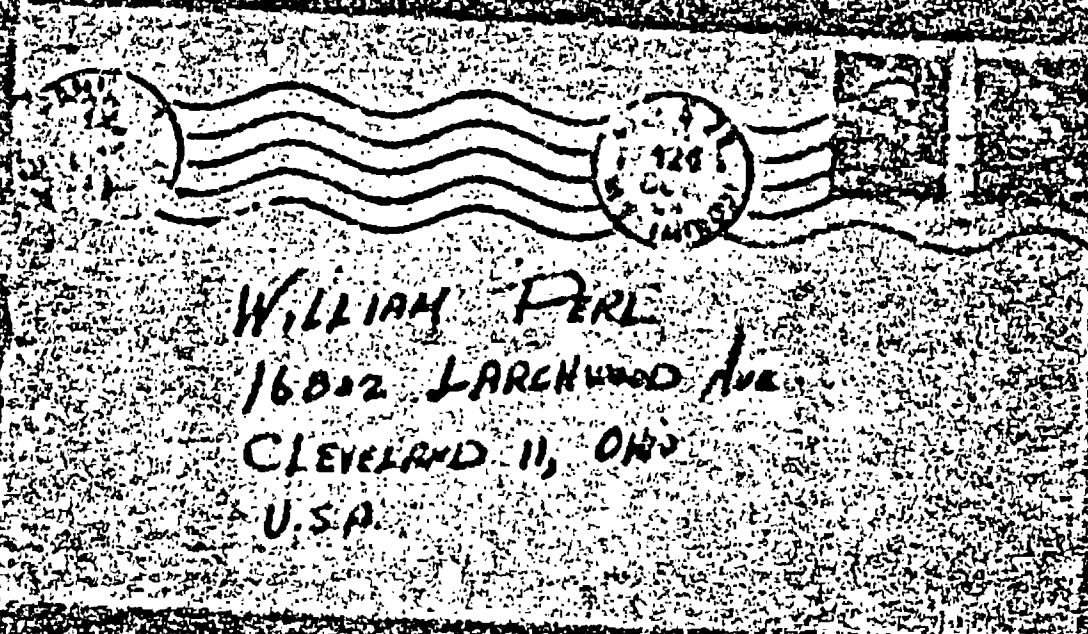 WILLIAM PERL
16802 LARCHWOOD AVE
CLEVELAND 11, OHIO
U.S.A.